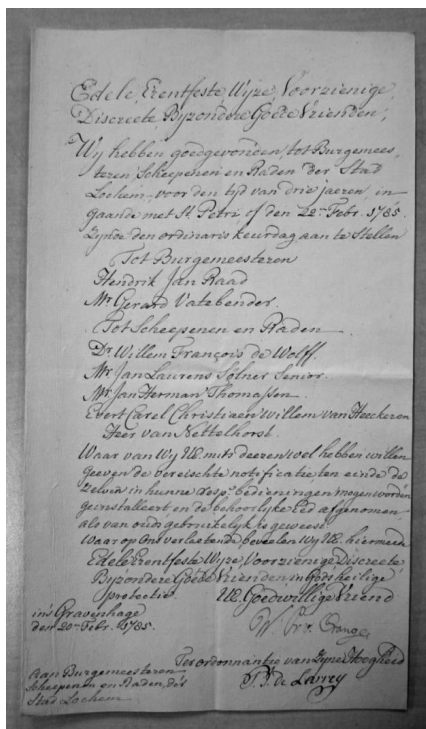 Edele, Erentfeste Wyze, Voorzienige,
Discreete, Byzondere Goede Vrienden,
Wy hebben goedgevonden, tot Burgemees,
teren, Scheepenen en Raden der Stad
Lochem, voor den tyd van drie jaeren, in-
gaande met St. Petri of den 22en Febr. 1785.
zynde den ordinaris keurdag, aan te Stellen
Tot Burgemeesteren
Hendrik Jan Raad
Mr. Gerard Vatebender.
Tot Scheepenen en Raden
Dr. Willem François de Wolff.
Mr. Jan Laurens Solner Senior.
Mr. Jan Herman Thomassen.
Evert Carel Christiaen Willem van Heeckeren
Heer van Nettelhorst.
Waar van Wy UE. mits deezen wel hebben willen
geeven de vereischte notificatie, ten einde de
zelven in hunne resp.e bedieningen mogen worden
geinstalleert, en de behoorlyke Eed afgenomen,
als van ouds gebruikelyk is geweest.
Waar op Ons verlaetende beveelen Wy UE. hiermede
Edele Erentfeste Wyze, Voorzienige Discreete
Byzondere Goede Vrienden in Gods heilige
protectie. UE. Goedwillige Vriend
in 's Gravenhage
den 20en Febr. 1785.
W Pr v. Orange
Ter ordonnantie van Zyne Hoogheid
T. I. de Larrey
Aan Burgemeesteren
Scheepenen en Raden der
Stad Lochem